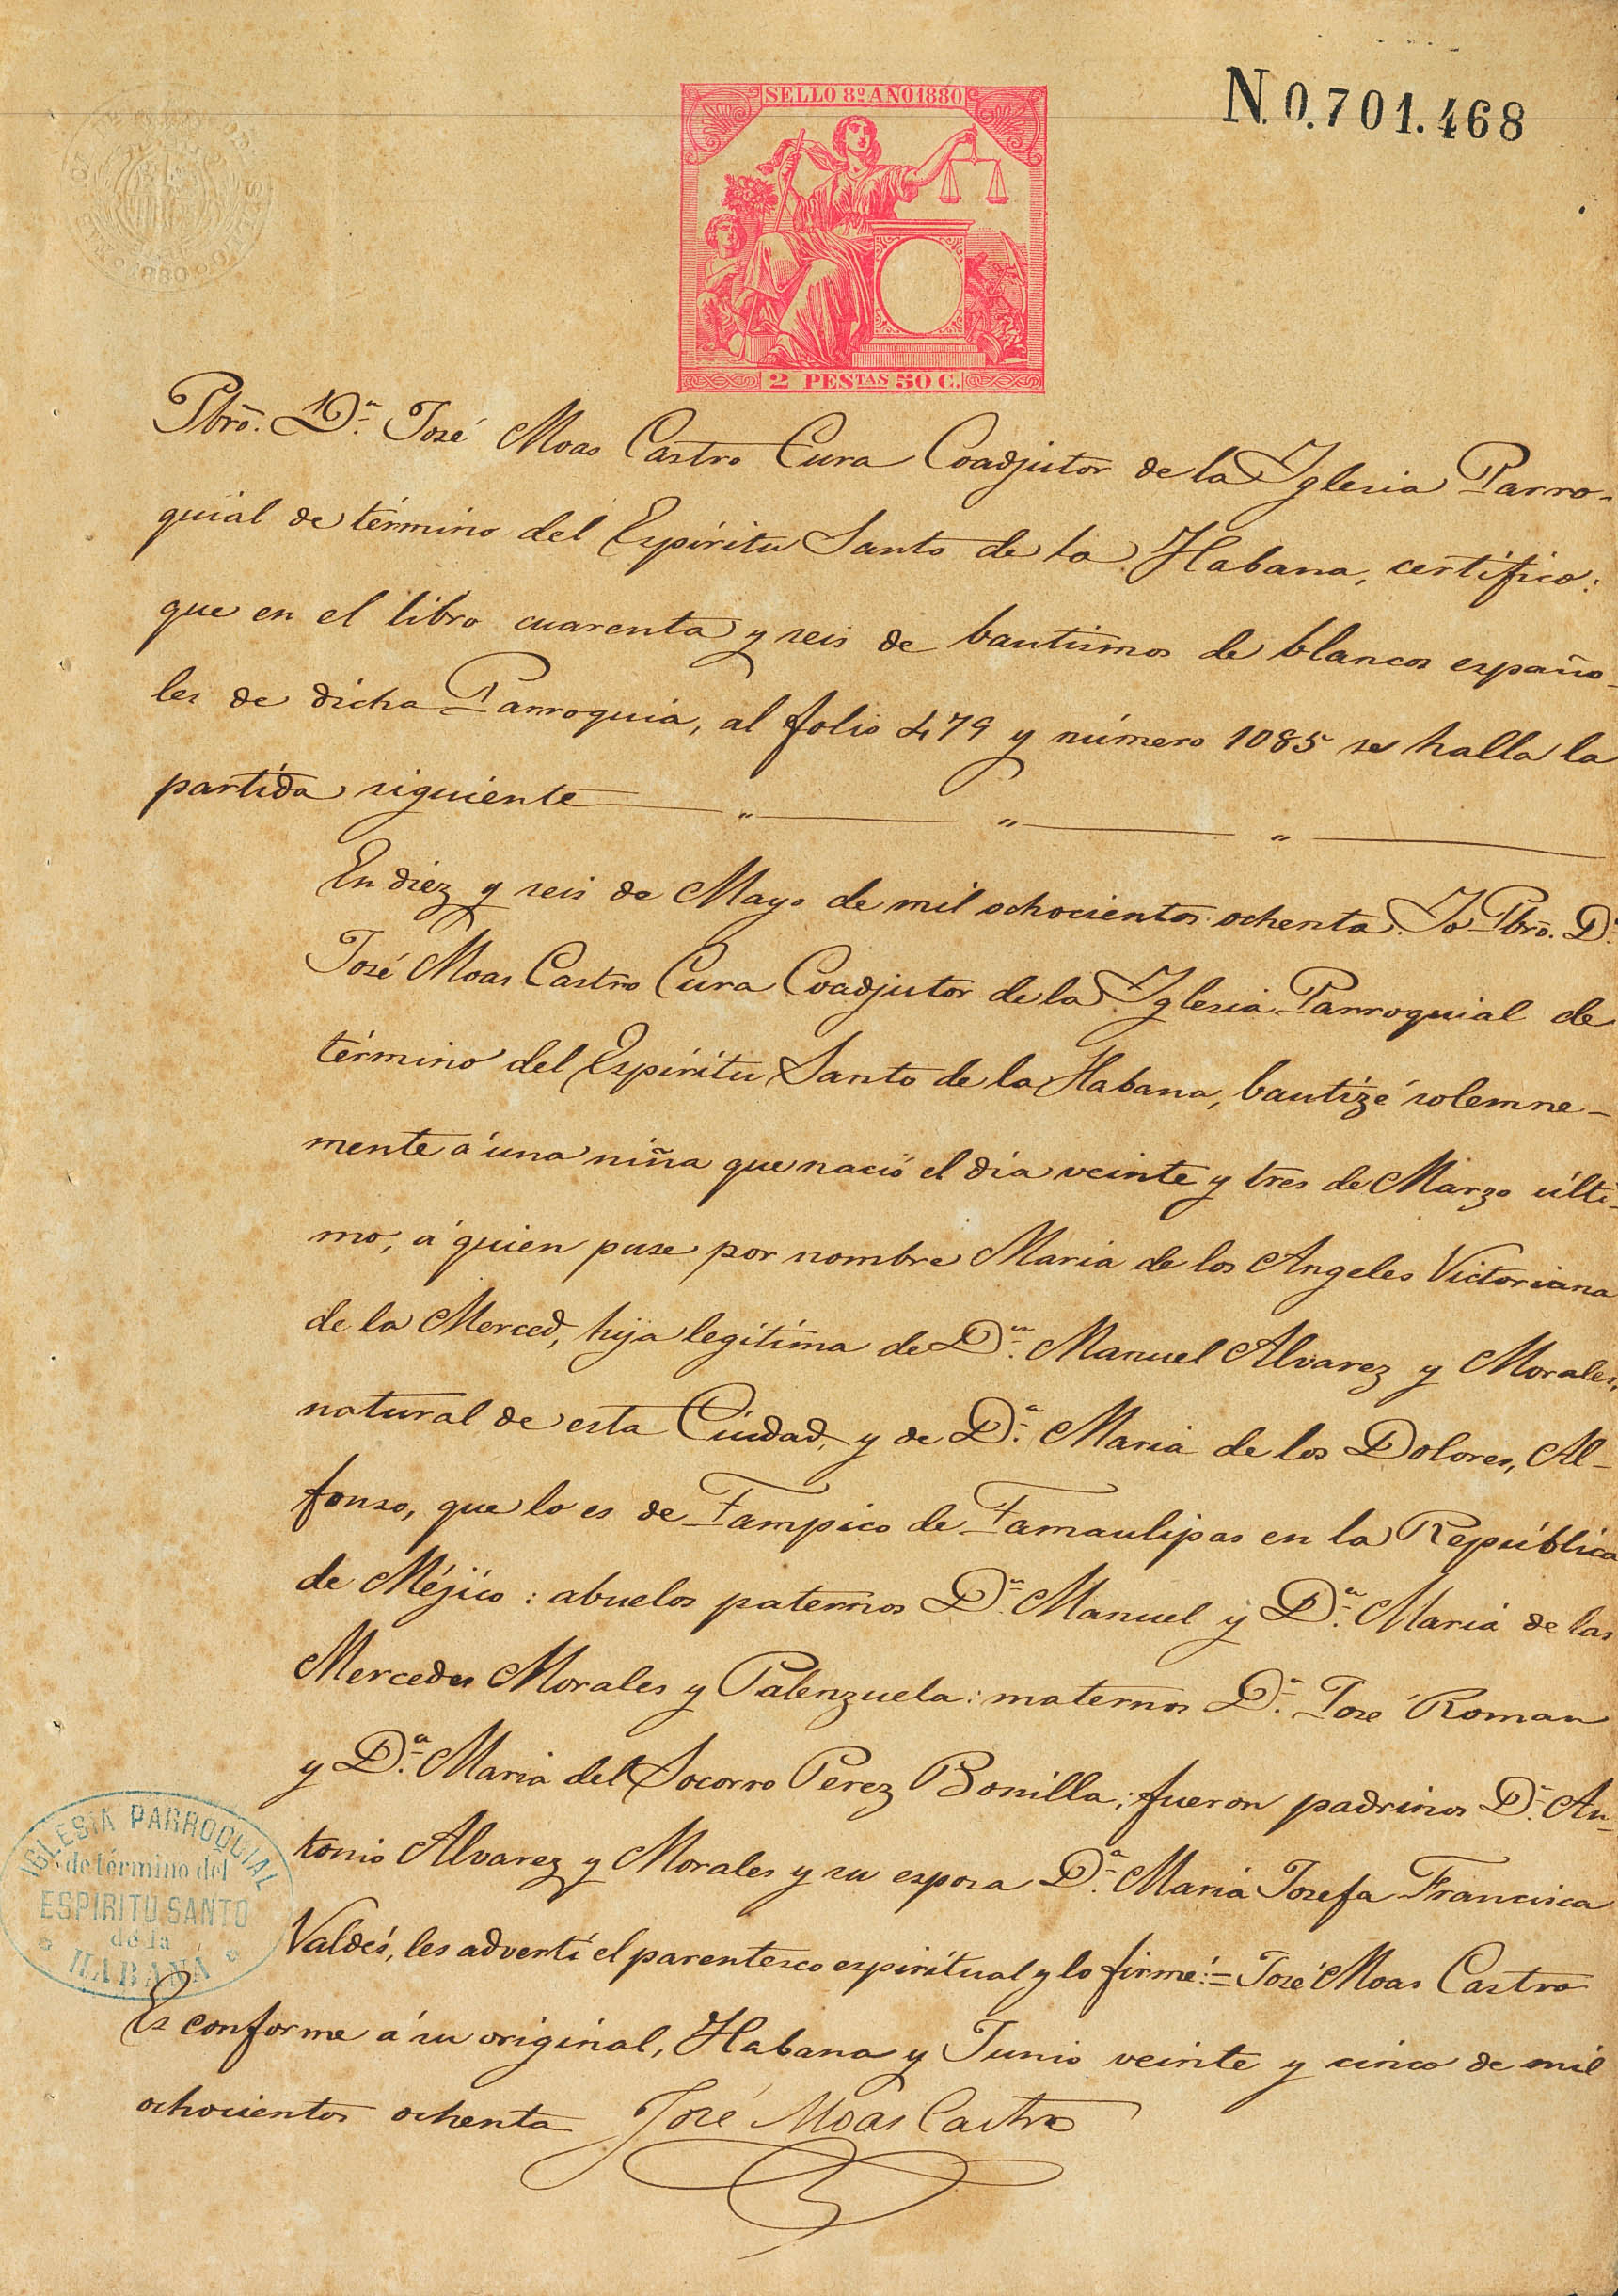 SELLO 8º AÑO 1880
N. 0.701.468
2 PESTAS 50 C.
Pbro. Dn. José Moas Castro Cura Coadjutor de la Iglesia Parro-
quial de término del Espíritu Santo de la Habana, certifico:
que en el libro cuarenta y seis de bautismos de blancos españo-
les de dicha Parroquia, al folio 479 y número 1085 se halla la
partida siguiente — " — " — " —
En diez y seis de Mayo de mil ochocientos ochenta. Yo Pbro. Dn.
José Moas Castro Cura Coadjutor de la Iglesia Parroquial de
término del Espíritu Santo de la Habana, bautizé solemne-
mente á una niña que nació el día veinte y tres de Marzo últi-
mo, á quien puse por nombre Maria de los Angeles Victoriana
de la Merced, hija legítima de Dn. Manuel Alvarez y Morales,
natural de esta Ciudad, y de Da. Maria de los Dolores, Al-
fonso, que lo es de Tampico de Tamaulipas en la República
de Méjico: abuelos paternos Dn. Manuel y Da. Maria de las
Mercedes Morales y Palenzuela: maternos Dn. José Roman
y Da. Maria del Socorro Perez Bonilla; fueron padrinos Dn. An-
tonio Alvarez y Morales y su esposa Da. Maria Josefa Francisca
Valdés, les advertí el parentesco espiritual y lo firmé: = José Moas Castro
Es conforme á su original, Habana y Junio veinte y cinco de mil
ochocientos ochenta José Moas Castro
IGLESIA PARROQUIAL
de término del
ESPIRITU SANTO
de la
HABANA
1880